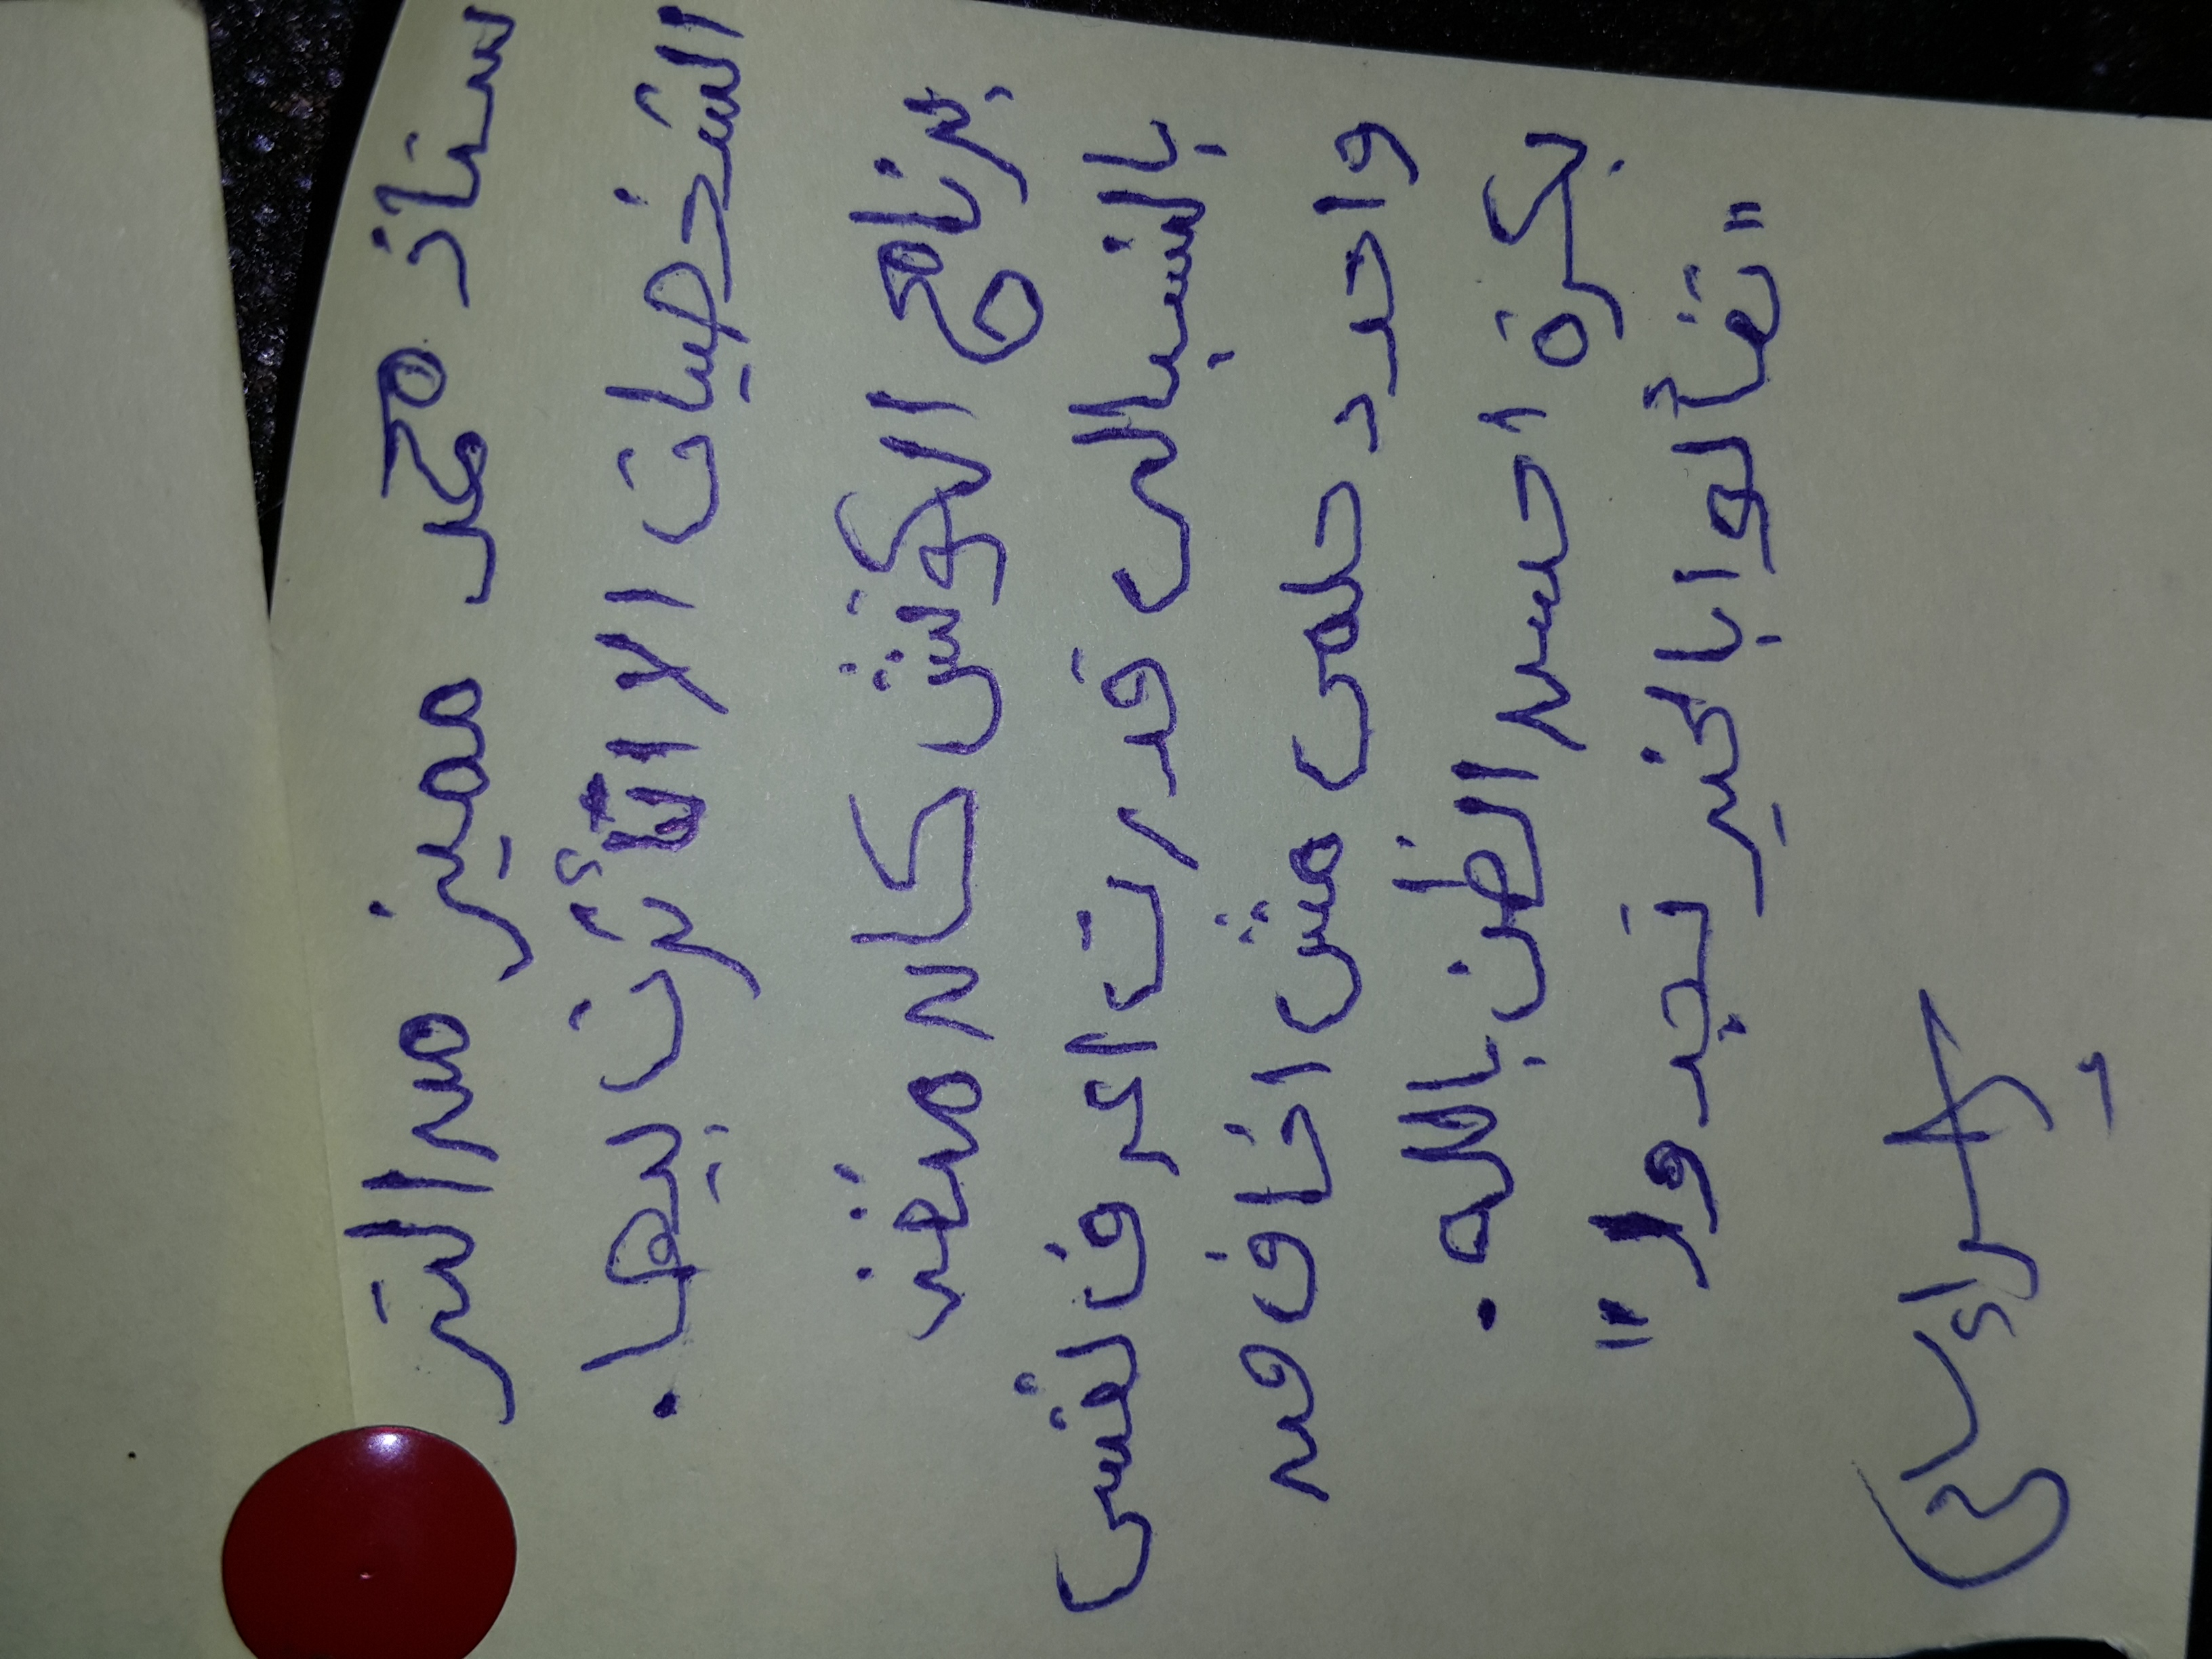 ستاذ محمد مميز من اكتر
الشخصيات الا اتأثرت بيها.
برنامج الكوتش كان متقن
بالنسبالى قدرت اعرف نفسى
واحدد حلمى مش اخاف من
بكرة احسن الظن بالله.
"تفألوا بالخير تجدوا"
إسراء سامى